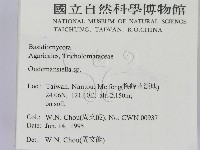 國立自然科學博物館
NATIONAL MUSEUM OF NATURAL SCIENCE
TAICHUNG, TAIWAN, R.O.CHINA
Basidiomycota
Agaricales, Tricholomataceae
Oudemansiella sp.
Loc: Taiwan, Nantou, Meifeng
24.06N, alt. 2150m,
on soil.
Col: W.N. Chou(周文能), No.: CWN 00937
Date: Jun. 14 1995
Det: W.N. Chou(周文能)